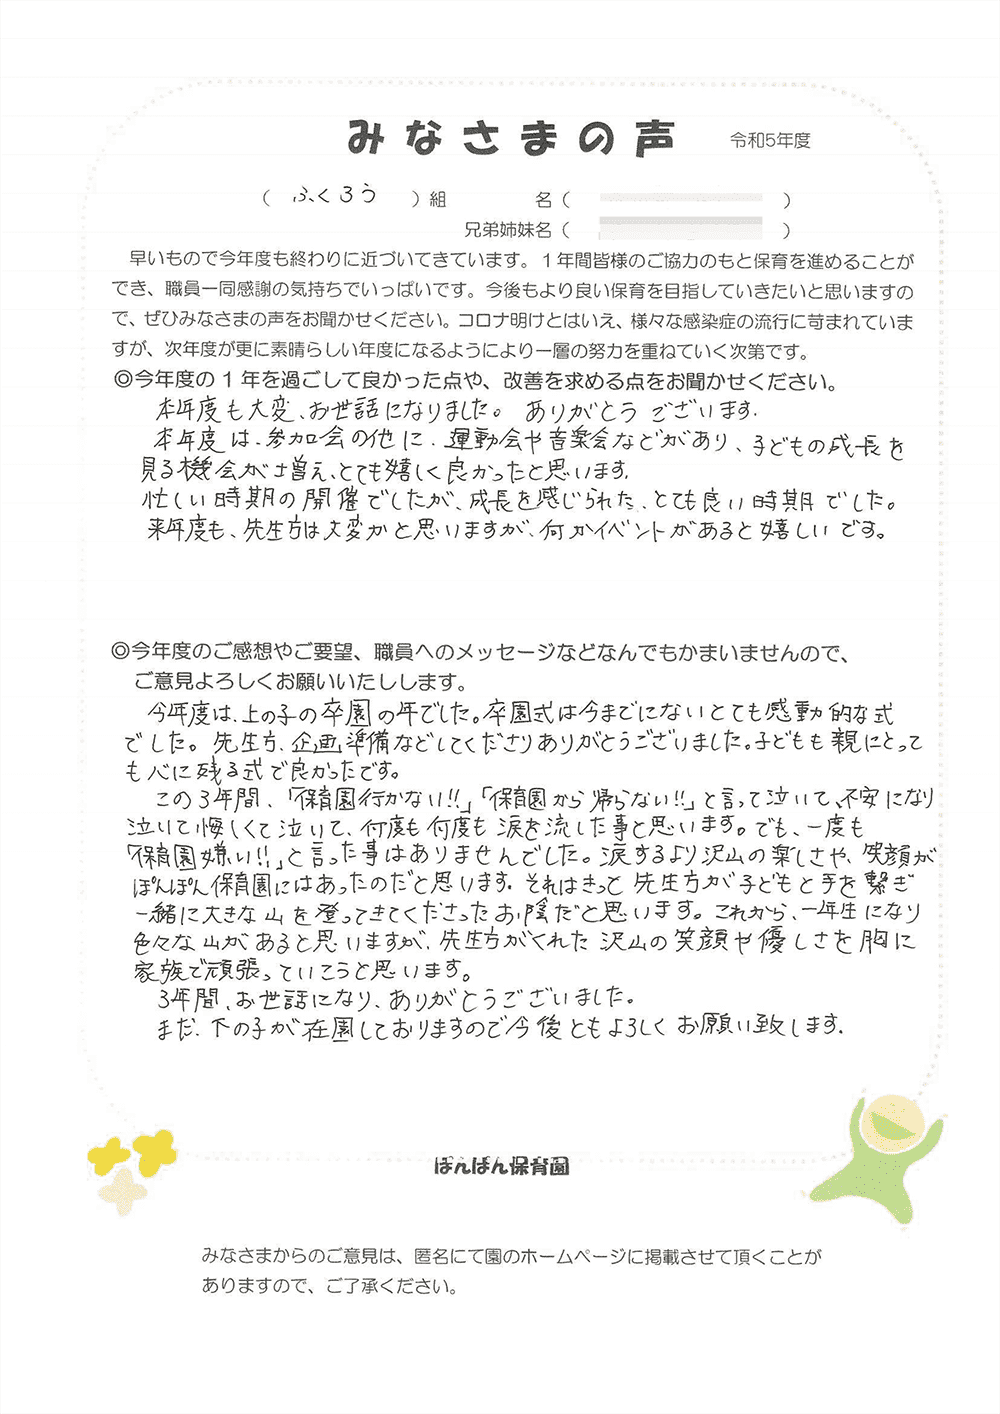 みなさまの声 令和5年度
（ ふくろう ）組 名（ ）
兄弟姉妹名（ ）
早いもので今年度も終わりに近づいてきています。１年間皆様のご協力のもと保育を進めることが
でき、職員一同感謝の気持ちでいっぱいです。今後もより良い保育を目指していきたいと思いますの
で、ぜひみなさまの声をお聞かせください。コロナ明けとはいえ、様々な感染症の流行に苛まれていま
すが、次年度が更に素晴らしい年度になるようにより一層の努力を重ねていく次第です。
◎今年度の１年を過ごして良かった点や、改善を求める点をお聞かせください。
本年度も大変、お世話になりました。ありがとうございます.
本年度は、参加会の他に、運動会や音楽会などがあり、子どもの成長を
見る機会が増え、とても嬉しく良かったと思います.
忙しい時期の開催でしたが、成長を感じられた、とても良い時期でした。
来年度も、先生方は大変かと思いますが、何かイベントがあると嬉しいです。
◎今年度のご感想やご要望、職員へのメッセージなどなんでもかまいませんので、
ご意見よろしくお願いいたしします。
今年度は、上の子の卒園の年でした。卒園式は今までにないとても感動的な式
でした。先生方、企画、準備などしてくださりありがとうございました。子どもも親にとって
も心に残る式で良かったです。
この3年間、「保育園行かない!!」「保育園から帰らない!!」と言って泣いて、不安になり
泣いて悔しくて泣いて、何度も何度も涙を流した事と思います。でも、一度も
「保育園嫌い!!」と言った事はありませんでした。涙するより沢山の楽しさや、笑顔が
ぽんぽん保育園にはあったのだと思います. それはきっと先生方が子どもと手を繋ぎ
一緒に大きな山を登ってきてくださったお陰だと思います。これから、一年生になり
色々な山があると思いますが、先生方がくれた沢山の笑顔や優しさを胸に
家族で頑張っていこうと思います。
3年間、お世話になり、ありがとうございました。
まだ、下の子が在園しておりますので今後ともよろしくお願い致します.
ぽんぽん保育園
みなさまからのご意見は、匿名にて園のホームページに掲載させて頂くことが
ありますので、ご了承ください。